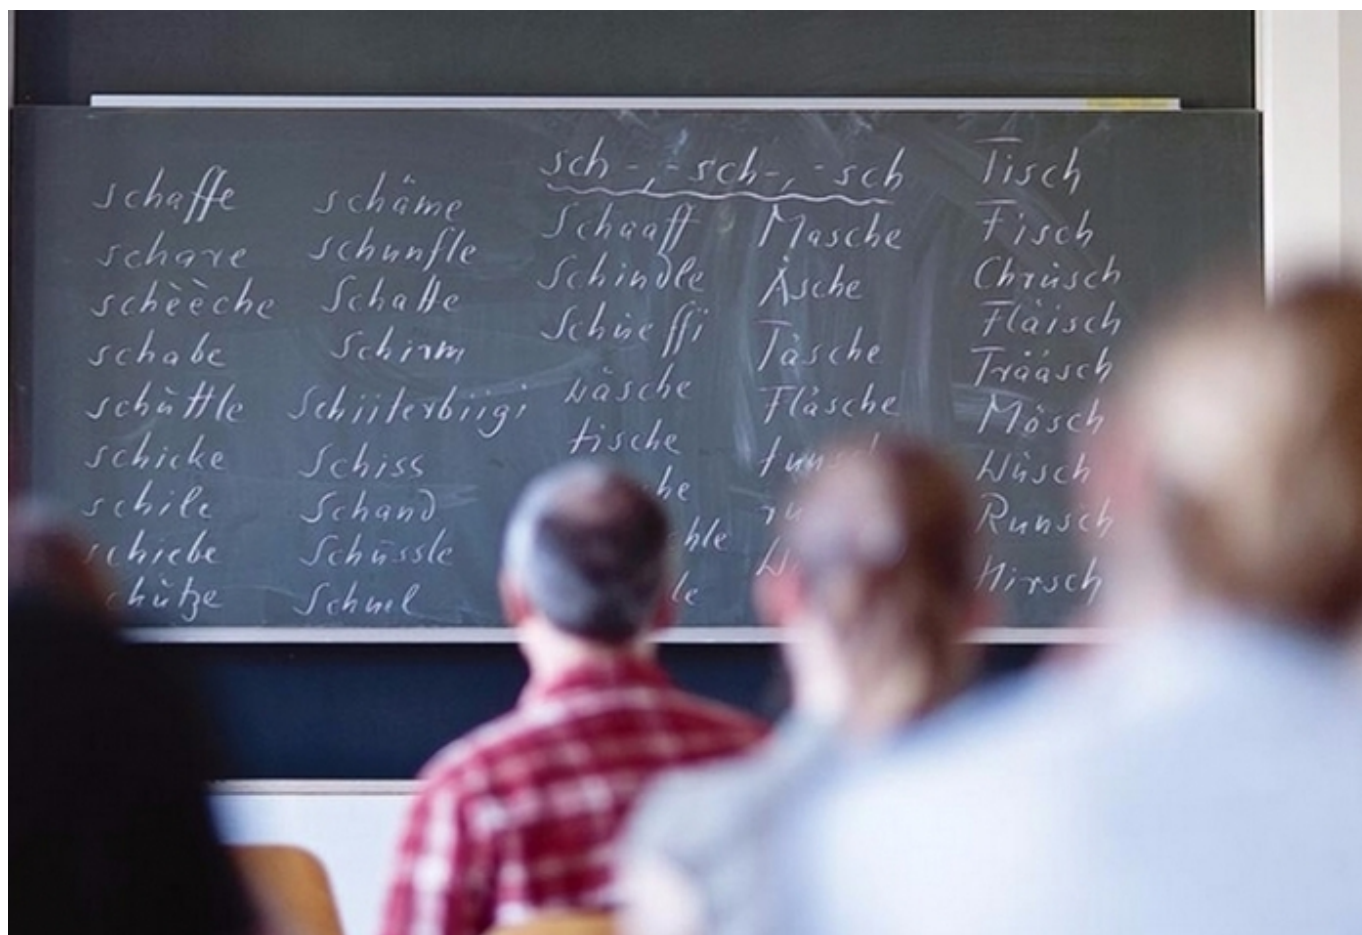 sch-, -sch-, -sch
schaffe
schare
schèèche
schabe
schùttle
schicke
schile
schiebe
schäme
schunfle
Schatte
Schirm
Schiiterbiigi
Schiss
Schand
Schüssle
Schuel
Schaaff
Schindle
Schüeffi
wäsche
tische
Masche
Äsche
Täsche
Fläsche
Tisch
Fisch
Chrüsch
Fläisch
Trääsch
Mösch
Wùsch
Runsch
Hirsch